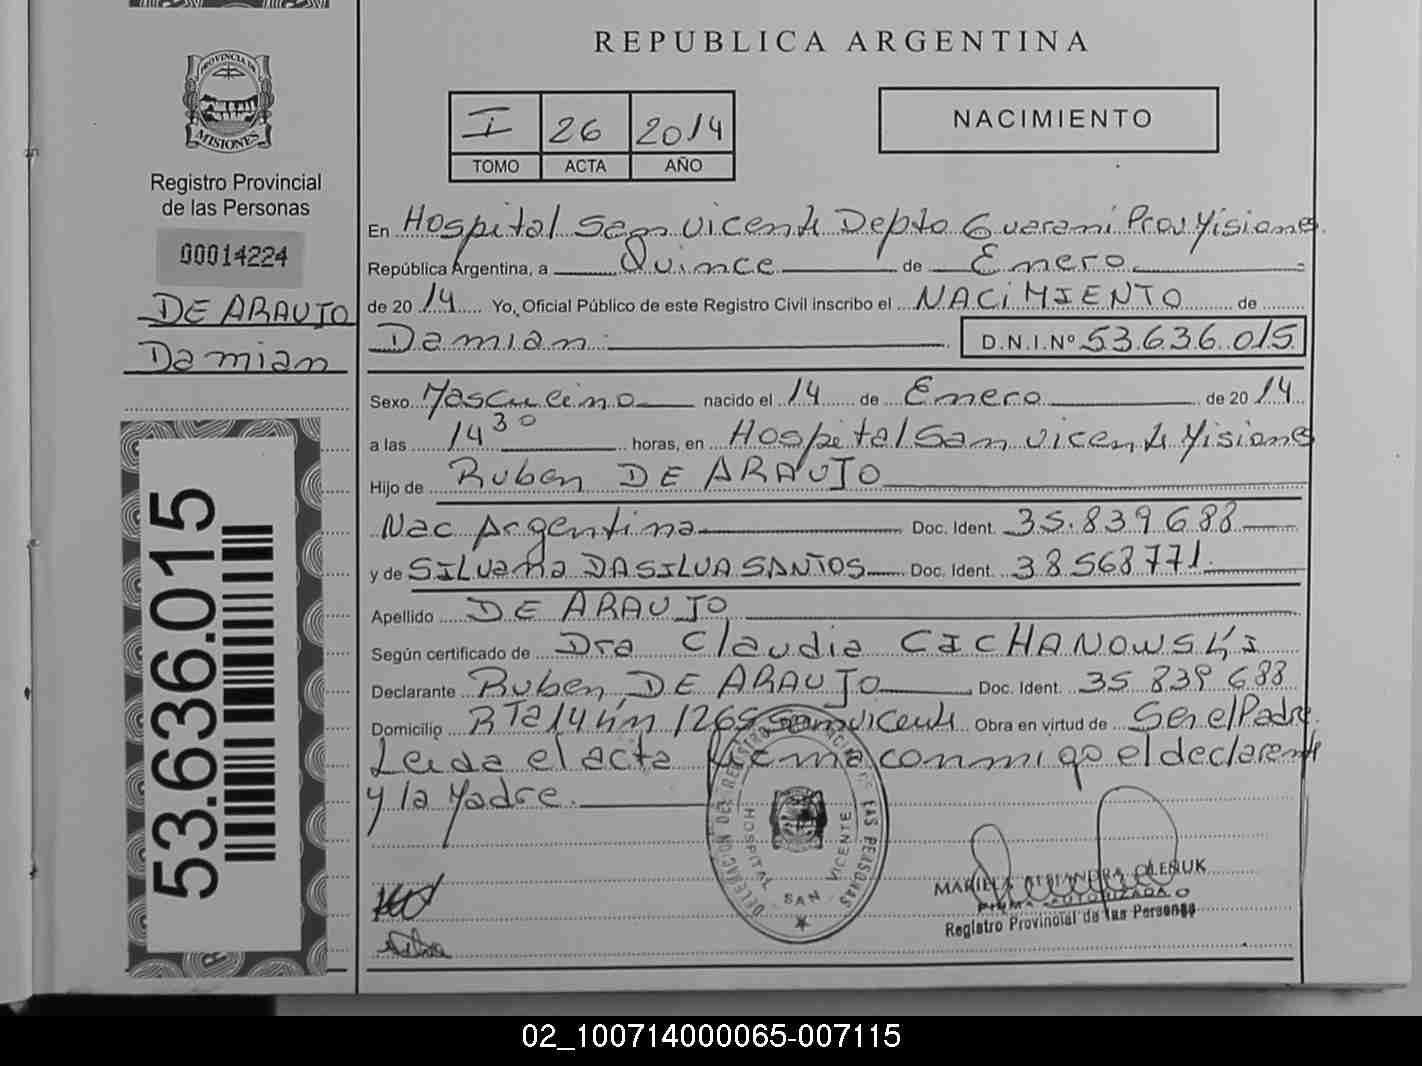 REPUBLICA ARGENTINA
PROVINCIA DE
MISIONES
Registro Provincial
de las Personas
00014224
DE ARAUJO
Damian
53.636.015
I 26 2014
TOMO ACTA AÑO
NACIMIENTO
En Hospital San Vicente Depto Guarani Prov Misiones
República Argentina, a Quince de Enero
de 2014 Yo, Oficial Público de este Registro Civil inscribo el NACIMIENTO de
Damian D.N.I.Nº 53.636.015
Sexo Masculino nacido el 14 de Enero de 2014
a las 14 30 horas, en Hospital San Vicente Misiones
Hijo de Ruben DE ARAUJO
Nac Argentina Doc. Ident. 35.839.688
y de SILVANA DASILVA SANTOS Doc. Ident. 38568771
Apellido DE ARAUJO
Según certificado de Dra Claudia CICHANOWSKI
Declarante Ruben DE ARAUJO Doc. Ident. 35 839 688
Domicilio RTA 14 km 1265 San Vicente Obra en virtud de Ser el Padre
Leida el acta firma conmigo el declarante
y la Madre.
DELEGACION DEL REGISTRO PROVINCIAL DE LAS PERSONAS
HOSPITAL SAN VICENTE
MARIELA ALEJANDRA OLENIUK
FIRMA AUTORIZADA
Registro Provincial de las Personas
02_100714000065-007115